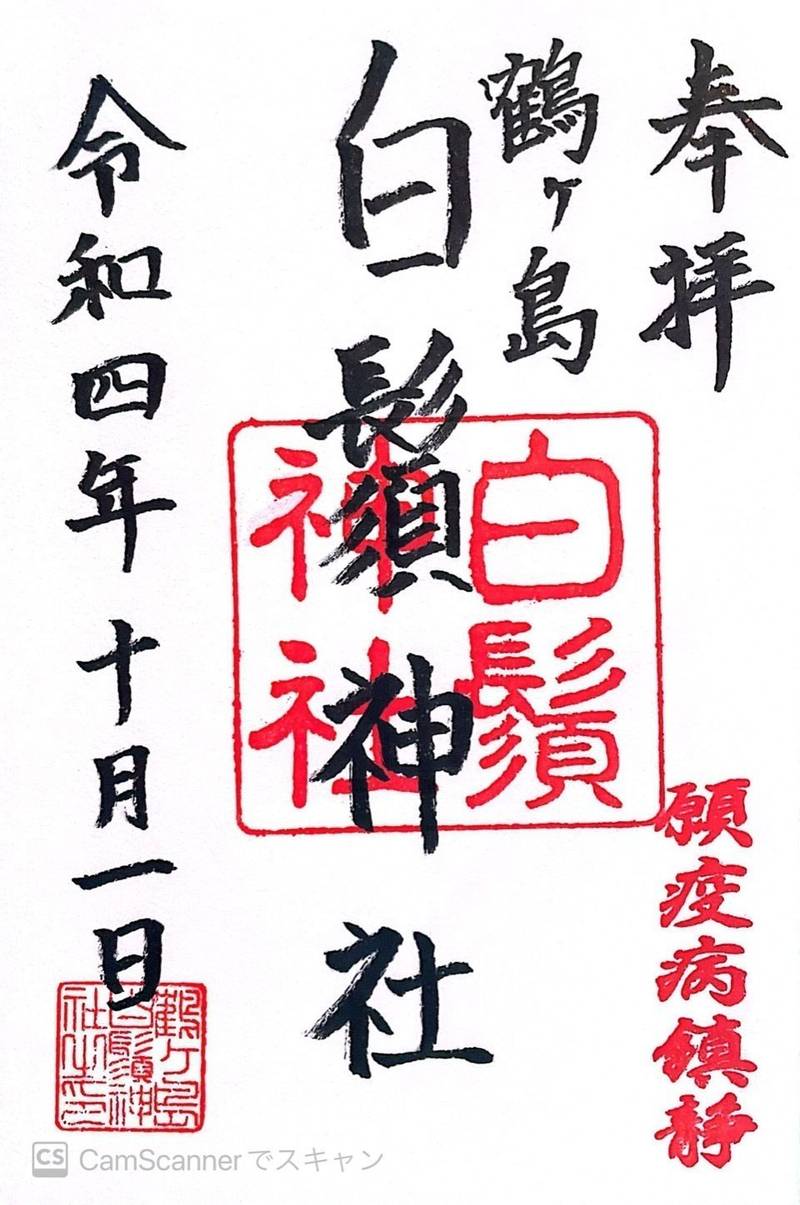 奉拝
鶴ヶ島
白鬚神社
令和四年十月一日
白鬚
神社
願疫病鎮静
鶴ヶ島
白鬚神
社之印
CS CamScannerでスキャン